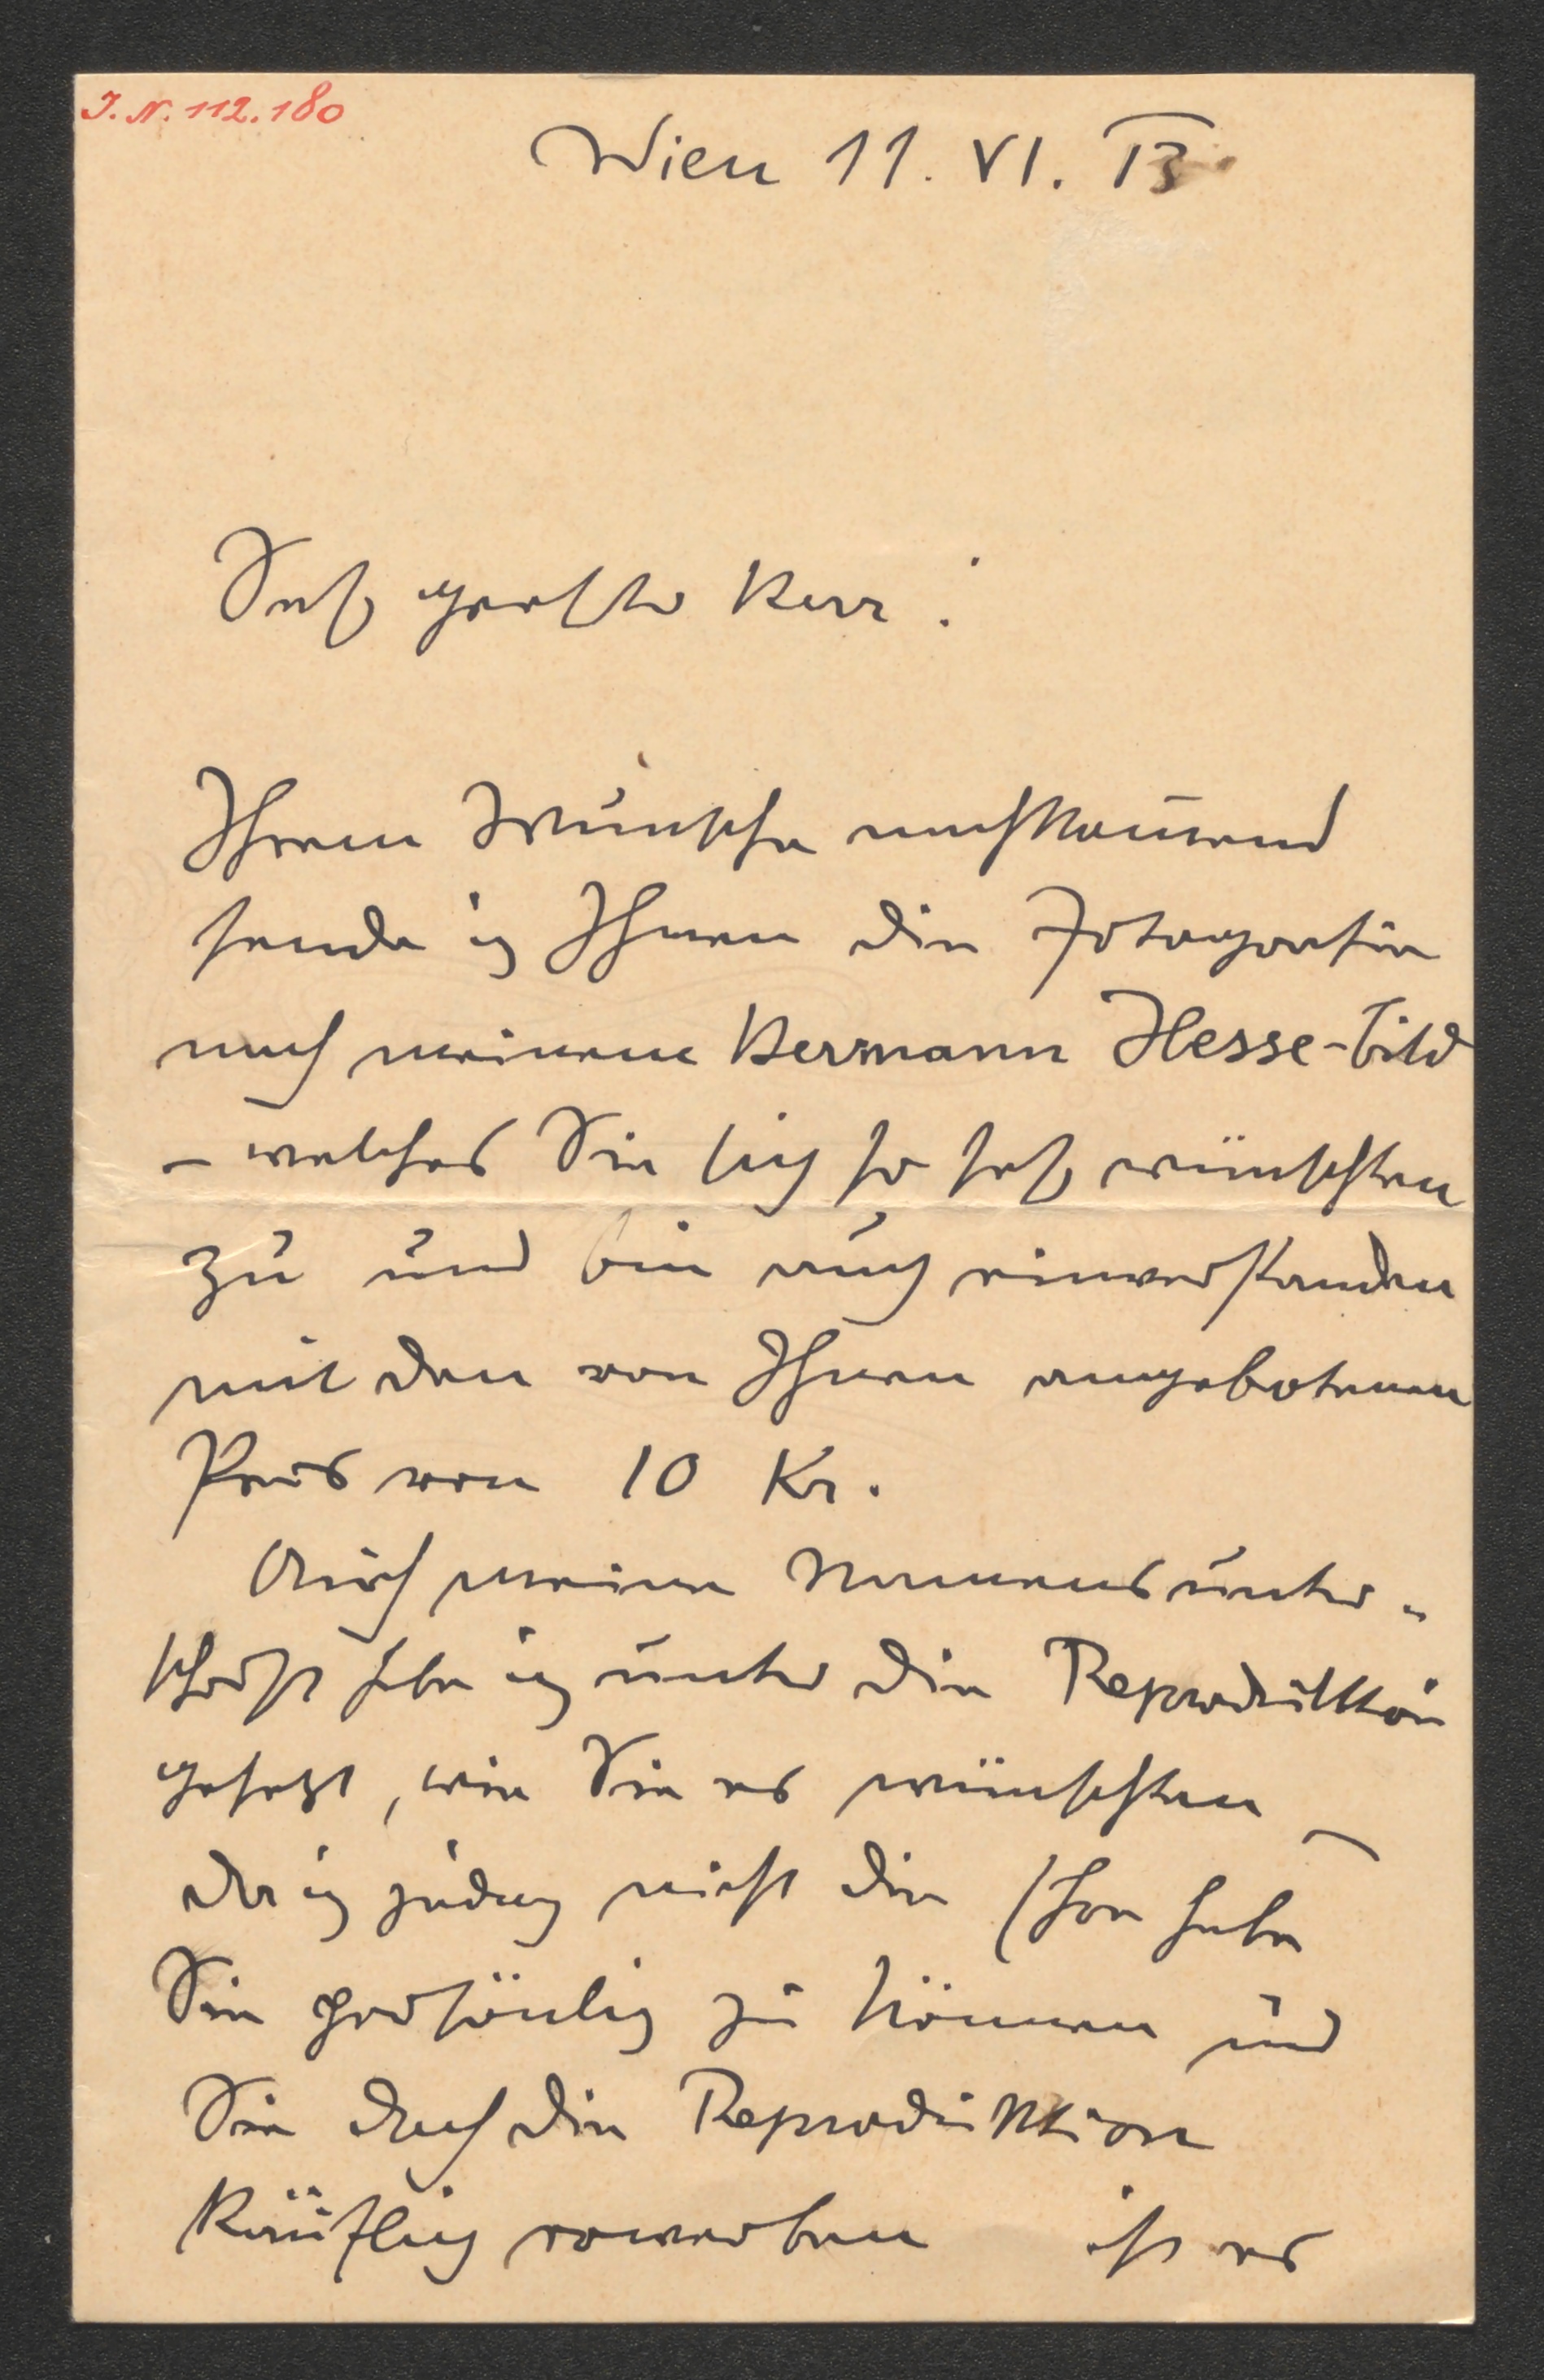 J. N. 112.180
Wien 11. VI. 13
Sehr geehrter Herr!
Ihrem Wunsche nachkommend
sende ich Ihnen die Fotografie
nach meinem Hermann Hesse-Bild
– welches Sie sich so sehr wünschten
zu und bin auch einverstanden
mit den von Ihnen angebotenen
Preis von 10 Kr.
Auch meine Namensunter-
schrift habe ich unter die Reproduktion
gesetzt, wie Sie es wünschten –
da ich jedoch nicht die Ehre habe
Sie persönlich zu kennen und
Sie doch die Reproduktion
käuflich erwerben ist es